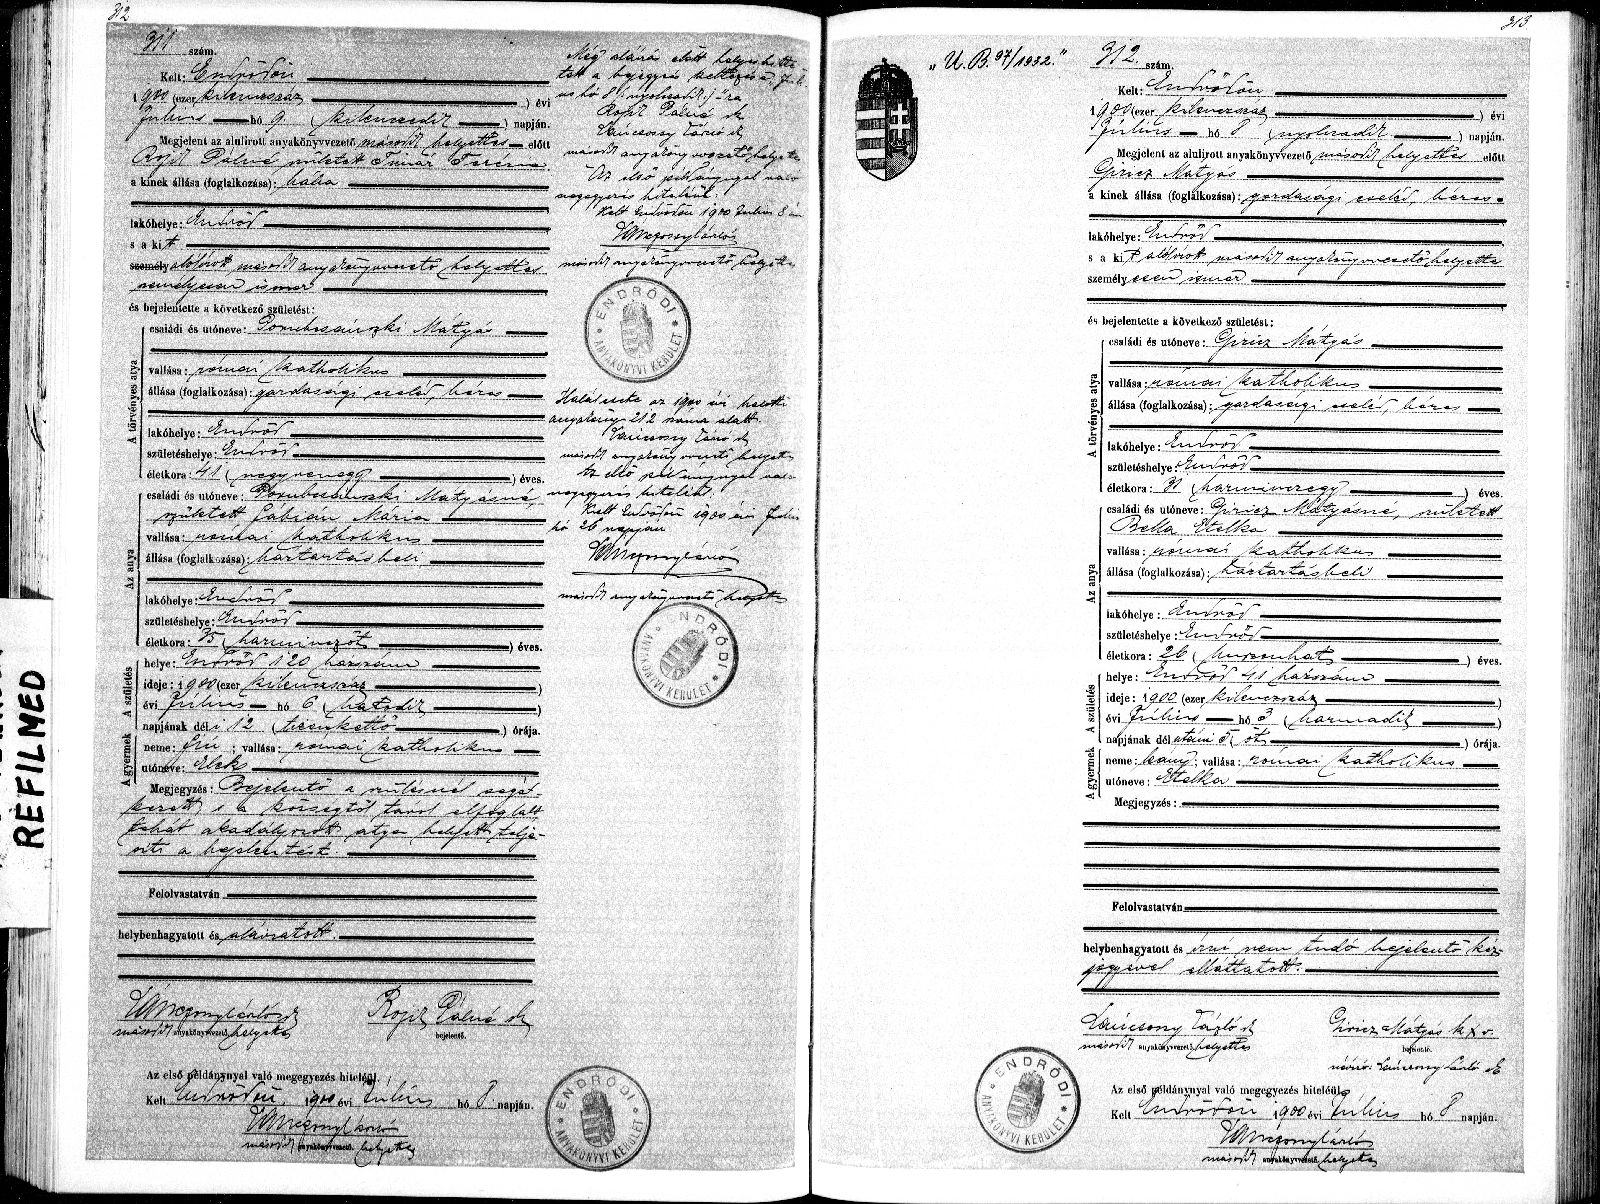 312
311 szám.
Kelt: Endrődön
1900 (ezer kilenczszáz ) évi
Július hó 9. ( kilenczedik ) napján.
Megjelent az alulirott anyakönyvvezető másodk helyettes előtt
Rojik Pálné született Timár Terézia
a kinek állása (foglalkozása): bába
lakóhelye: Endrőd
s a kit
személy alólirott másodk anyakönyvvezető helyettes
személyesen ismer
és bejelentette a következő születést:
A törvényes atya
családi és utóneve: Porubcsánszki Mátyás
vallása: római katholikus
állása (foglalkozása): gazdasági cseléd, béres
lakóhelye: Endrőd
születéshelye: Endrőd
életkora: 41 ( negyvenegy ) éves.
Az anya
családi és utóneve: Porubcsánszki Mátyásné,
született Fabián Mária
vallása: római katholikus
állása (foglalkozása): háztartásbeli
lakóhelye: Endrőd
születéshelye: Endrőd
életkora: 35 ( harminczöt ) éves.
A születés
helye: Endrőd 120 házszám
ideje: 1900 (ezer kilenczszáz )
évi Július hó 6 ( hatodik )
napjának déli 12 ( tizenkettő ) órája.
A gyermek
neme: fiu; vallása: római katholikus
utóneve: Elek
Megjegyzés: Bejelentő a szülésnél segéd-
kezett s a községtől távol elfoglalt
tehát akadályozott atya helyett telje-
siti a bejelentést.
Felolvastatván
helybenhagyatott és aláiratott.
másodk anyakönyvvezető helyettes
Rojik Pálné sk
bejelentő.
Az első példánynyal való megegyezés hiteléül.
Kelt Endrődön, 1900 évi Július hó 8 napján.
másodk anyakönyvvezető helyettes
Még aláirás előtt helyesbitte
tett a bejegyzés keltezése Juli
us hó 8 (nyolczadik)-ra
Rojik Pálné sk
Láncsony László sk
másodk anyakönyvvezető helyettes
Az első példánynyal való
megegyezés hiteléül.
Kelt Endrődön 1900 Július 8 án
másodk anyakönyvvezető helyettes
ENDRŐDI
ANYAKÖNYVI KERÜLET
Halálesete az 1900 évi halotti
anyakönyv 212 száma alatt.
Láncsony László sk
másodk anyakönyvvezető helyettes
Az első példánynyal való
megegyezés hiteléül.
Kelt Endrődön 1900 évi Július
hó 26 napján
másodk anyakönyvvezető helyettes
ENDRŐDI
ANYAKÖNYVI KERÜLET
ENDRŐDI
ANYAKÖNYVI KERÜLET
REFILMED
313
„U. B. 97/1932."
312 szám.
Kelt: Endrődön
1900 (ezer kilenczszáz ) évi
Július hó 8 ( nyolczadik ) napján.
Megjelent az alulirott anyakönyvvezető másodk helyettes előtt
Giricz Mátyás
a kinek állása (foglalkozása): gazdasági cseléd, béres
lakóhelye: Endrőd
s a kit alólirott másodk anyakönyvvezető helyettes
személyesen ismer
és bejelentette a következő születést:
A törvényes atya
családi és utóneve: Giricz Mátyás
vallása: római katholikus
állása (foglalkozása): gazdasági cseléd, béres
lakóhelye: Endrőd
születéshelye: Endrőd
életkora: 31 ( harminczegy ) éves.
Az anya
családi és utóneve: Giricz Mátyásné, született
Bella Etelka
vallása: római katholikus
állása (foglalkozása): háztartásbeli
lakóhelye: Endrőd
születéshelye: Endrőd
életkora: 26 ( huszonhat ) éves.
A születés
helye: Endrőd 41 házszám
ideje: 1900 (ezer kilenczszáz )
évi Július hó 3 ( harmadik )
napjának dél utáni 5 ( öt ) órája.
A gyermek
neme: leány; vallása: római katholikus
utóneve: Etelka
Megjegyzés:
Felolvastatván
helybenhagyatott és irni nem tudó bejelentő kéz-
jegyével elláttatott.
Láncsony László sk
másodk anyakönyvvezető helyettes
Giricz Mátyás k x v.
bejelentő.
névíró: Láncsony László sk
Az első példánynyal való megegyezés hiteléül.
Kelt Endrődön 1900 évi Július hó 8 napján.
másodk anyakönyvvezető helyettes
ENDRŐDI
ANYAKÖNYVI KERÜLET